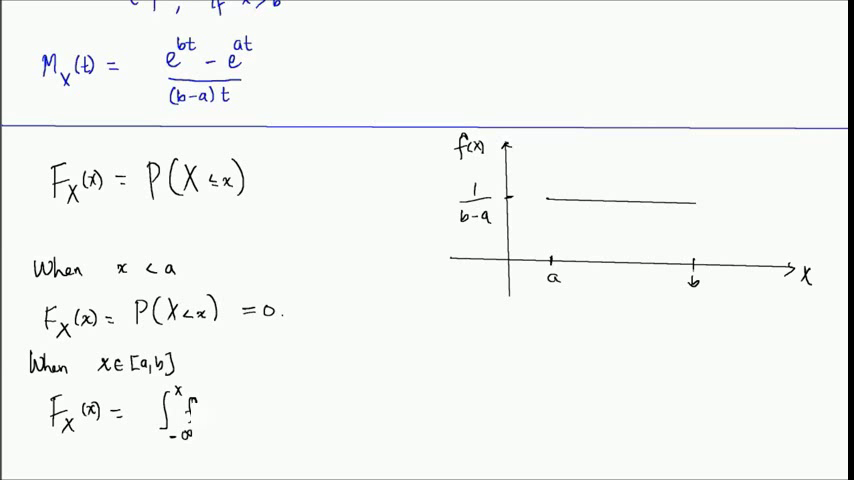 1, if x > b
M_X(t) = \frac{e^{bt} - e^{at}}{(b-a)t}
F_X(x) = P(X ≤ x)
When x < a
F_X(x) = P(X < x) = 0.
When x ∈ [a,b]
F_X(x) = ∫_{-∞}^{x} f
f(x)
\frac{1}{b-a}
a
b
x